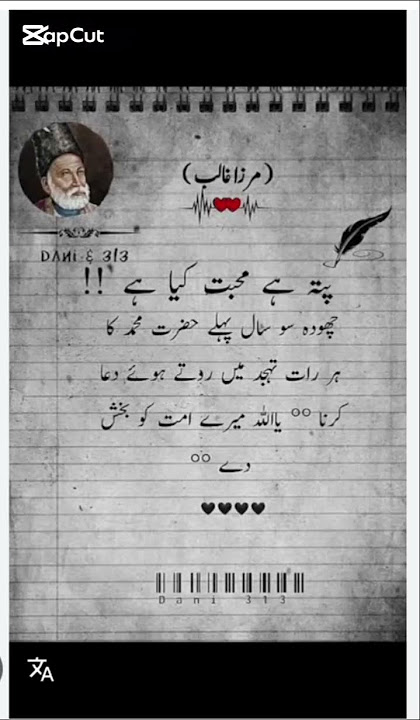 CapCut
(مرزا غالب)
DANi £ 313
پتہ ہے محبت کیا ہے !!
چھودہ سو سال پہلے حضرت محمد کا
ہر رات تہجد میں روتے ہوئے دعا
کرنا °° یااللہ میرے امت کو بخش
دے °°
Dani 313